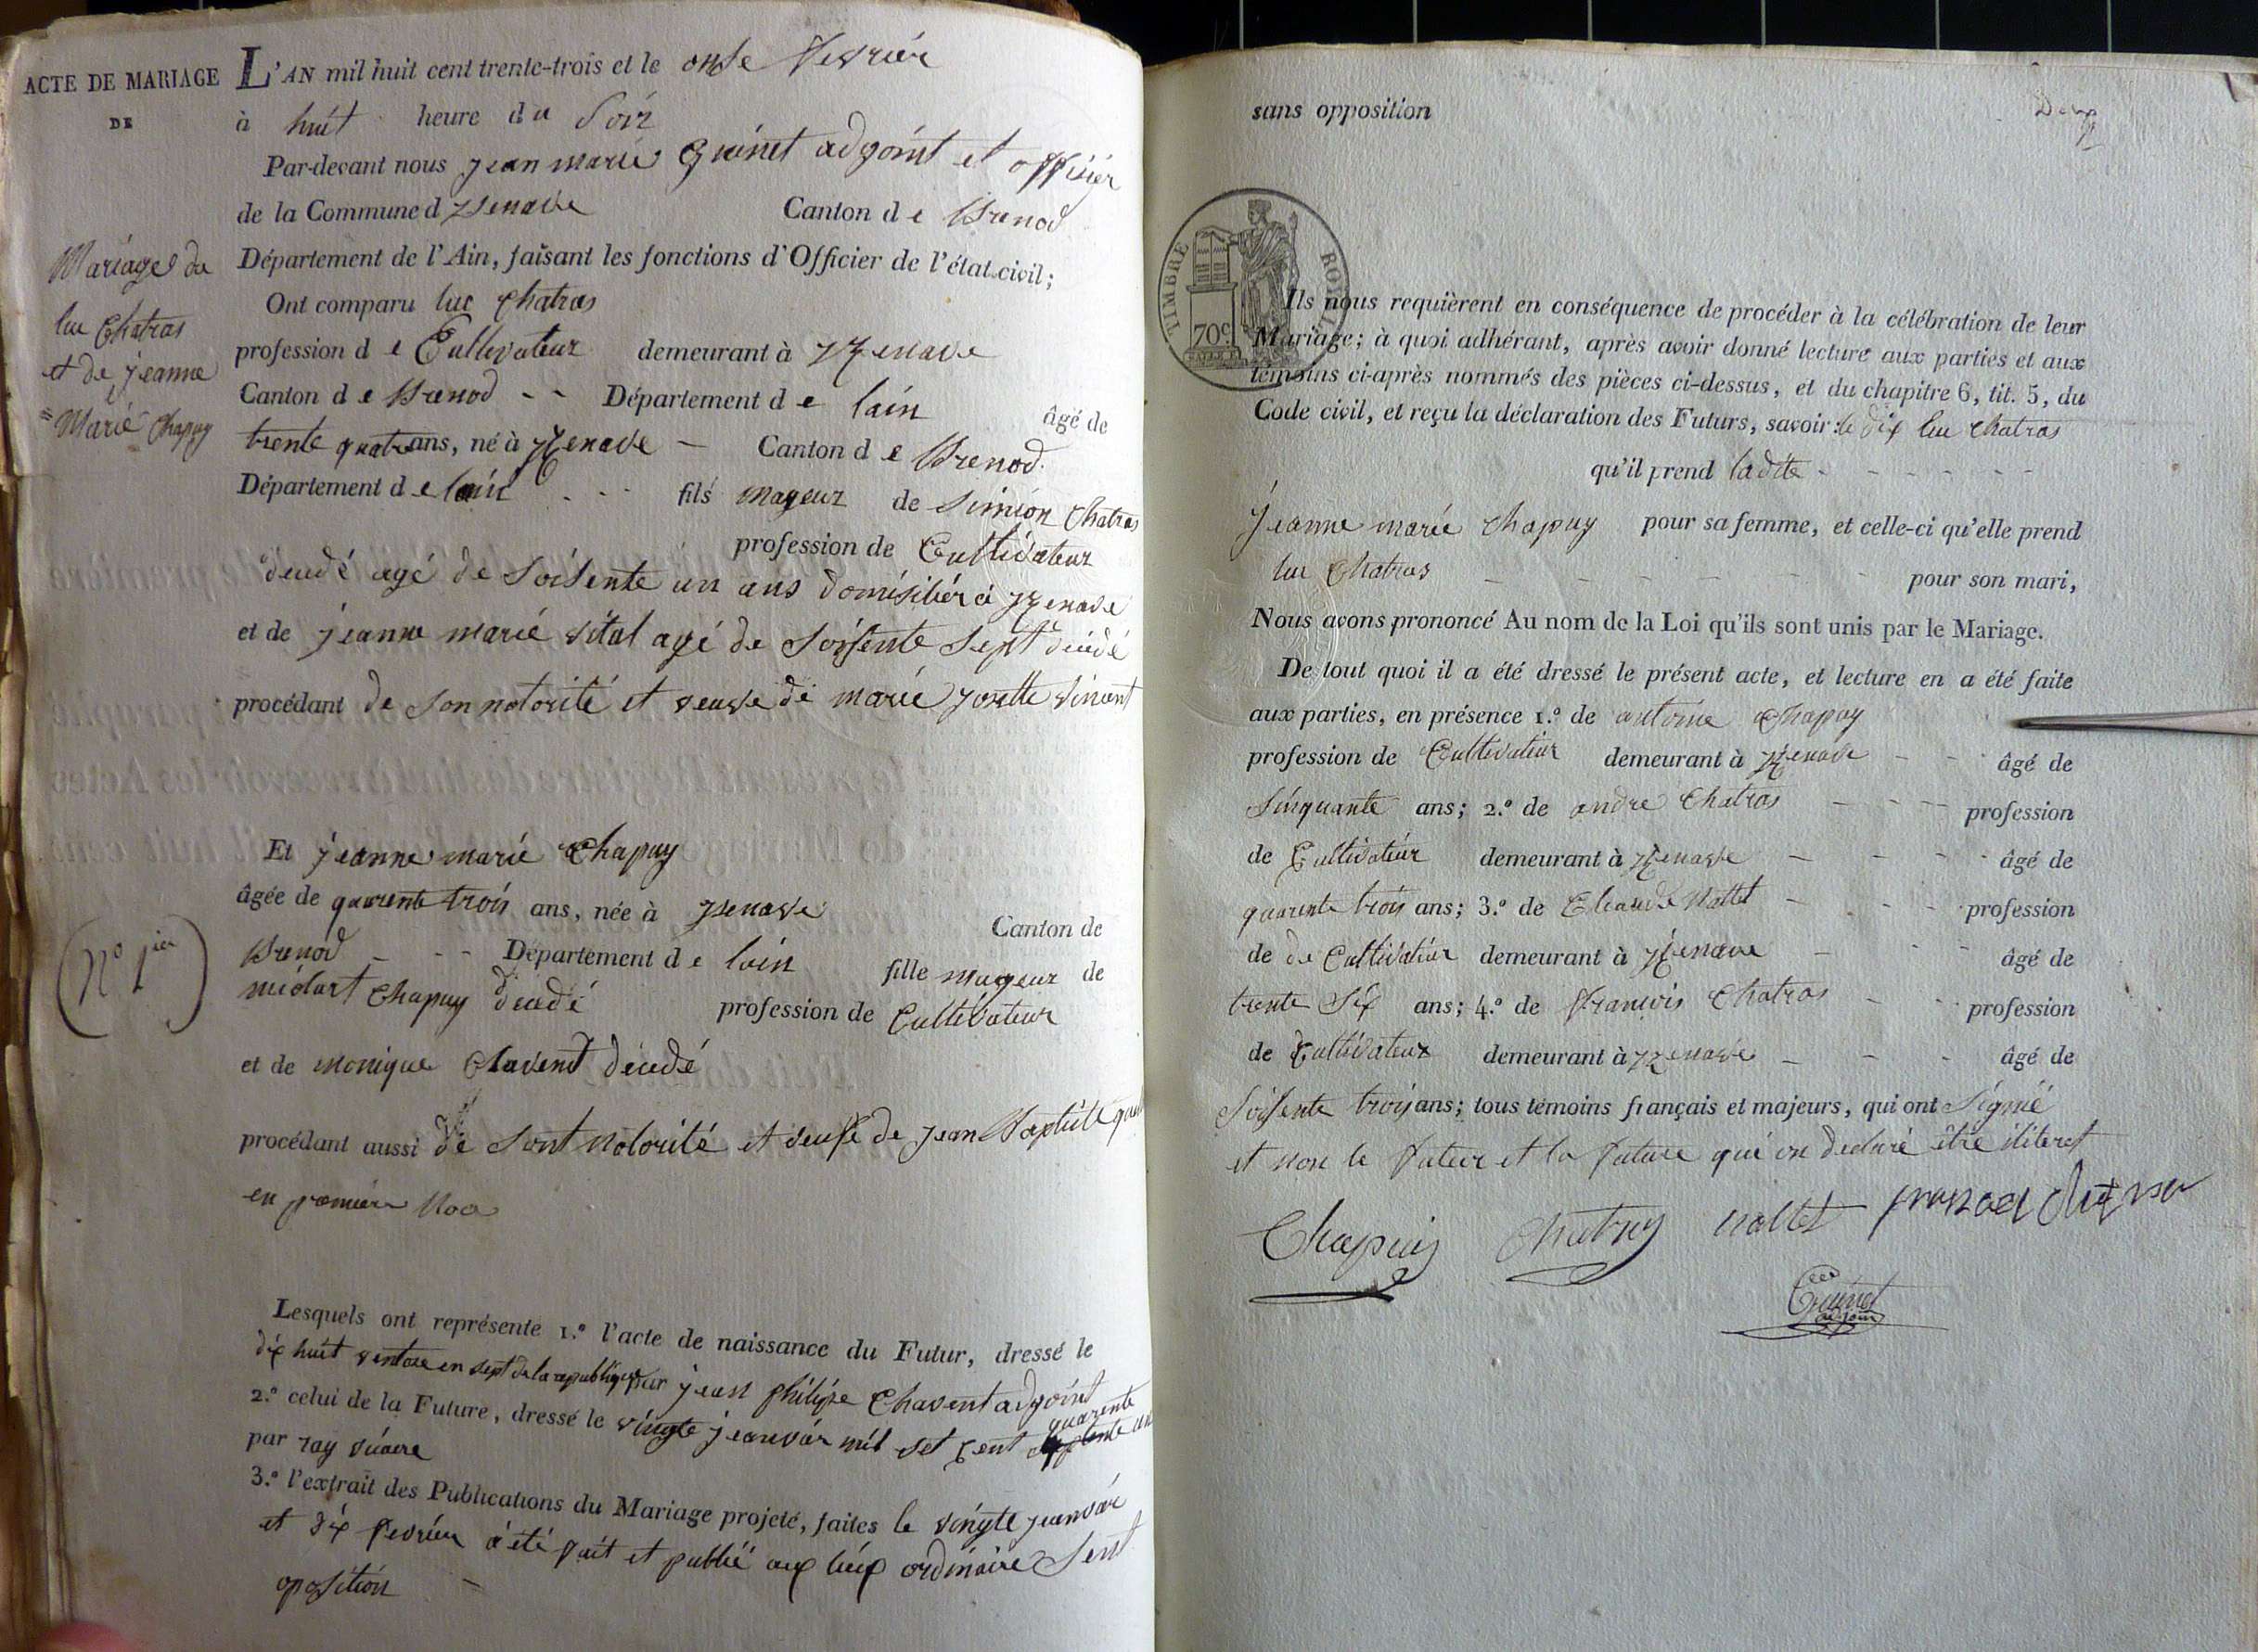 ACTE DE MARIAGE
DE
Mariage du
luc Chatras
et de jeanne
Marie Chapuy
(N° 1ier)
L'AN mil huit cent trente-trois et le onse fevrier
à huit heure du Soir
Par-devant nous jean marie Guinet adgoint et offisier
de la Commune d izenave Canton de Brenod
Département de l'Ain, faisant les fonctions d'Officier de l'état civil;
Ont comparu luc Chatras
profession de Cultivateur demeurant à izenave
Canton de Brenod - - Département de lain âgé de
trente quatre ans, né à izenave - Canton de Brenod.
Département de lain - - - fils mageur de Simion Chatras
profession de Cultivateur
déudé agé de Soisente un ans domisilier à izenave
et de jeanne marie vital agé de Soisente Sept déudé
procédant de Son notorité et veusve de marie josette vincent
Et jeanne marie Chapuy
âgée de quarente trois ans, née à izenave Canton de
Brenod - - - Département de lain fille mageur de
Chapuy déudé profession de Cultivateur
et de monique Chavent déudé
procédant aussi de Sont notorité et veuse de jean Baptiste
en premiere Noa
Lesquels ont représente 1.° l'acte de naissance du Futur, dressé le
dix huit ventose en sept de la republique par jean philipe Chavent adgoint
2.° celui de la Future, dressé le vingte jeanvier mil set cent quarente
par ray vicaire
3.° l'extrait des Publications du Mariage projeté, faites le vingte jeanvier
et dix fevrier a été fait et publié aux lieux ordinaire Sent
oposition -
sans opposition
Deux
TIMBRE ROYAL
70c.
Ils nous requièrent en conséquence de procéder à la célébration de leur
Mariage; à quoi adhérant, après avoir donné lecture aux parties et aux
témoins ci-après nommés des pièces ci-dessus, et du chapitre 6, tit. 5, du
Code civil, et reçu la déclaration des Futurs, savoir: le dix luc Chatras
qu'il prend ladite - - - - - -
jeanne marie Chapuy pour sa femme, et celle-ci qu'elle prend
luc Chatras - - - - - - - pour son mari,
Nous avons prononcé Au nom de la Loi qu'ils sont unis par le Mariage.
De tout quoi il a été dressé le présent acte, et lecture en a été faite
aux parties, en présence 1.° de antoine Chapuy
profession de Cultivateur demeurant à izenave - - âgé de
Sinquante ans; 2.° de andre Chatras - - - profession
de Cultivateur demeurant à izenave - - - âgé de
quarente trois ans; 3.° de Claude Nallet - - - profession
de de Cultivateur demeurant à izenave - - - âgé de
trente Six ans; 4.° de francois Chatras - - profession
de Cultivateur demeurant à izenave - - - âgé de
Soisente trois ans; tous témoins français et majeurs, qui ont Signé
et non le futeur et la future qui on declaré être iliteret
Chapuis Chatras nallet
Guinet
adjoin